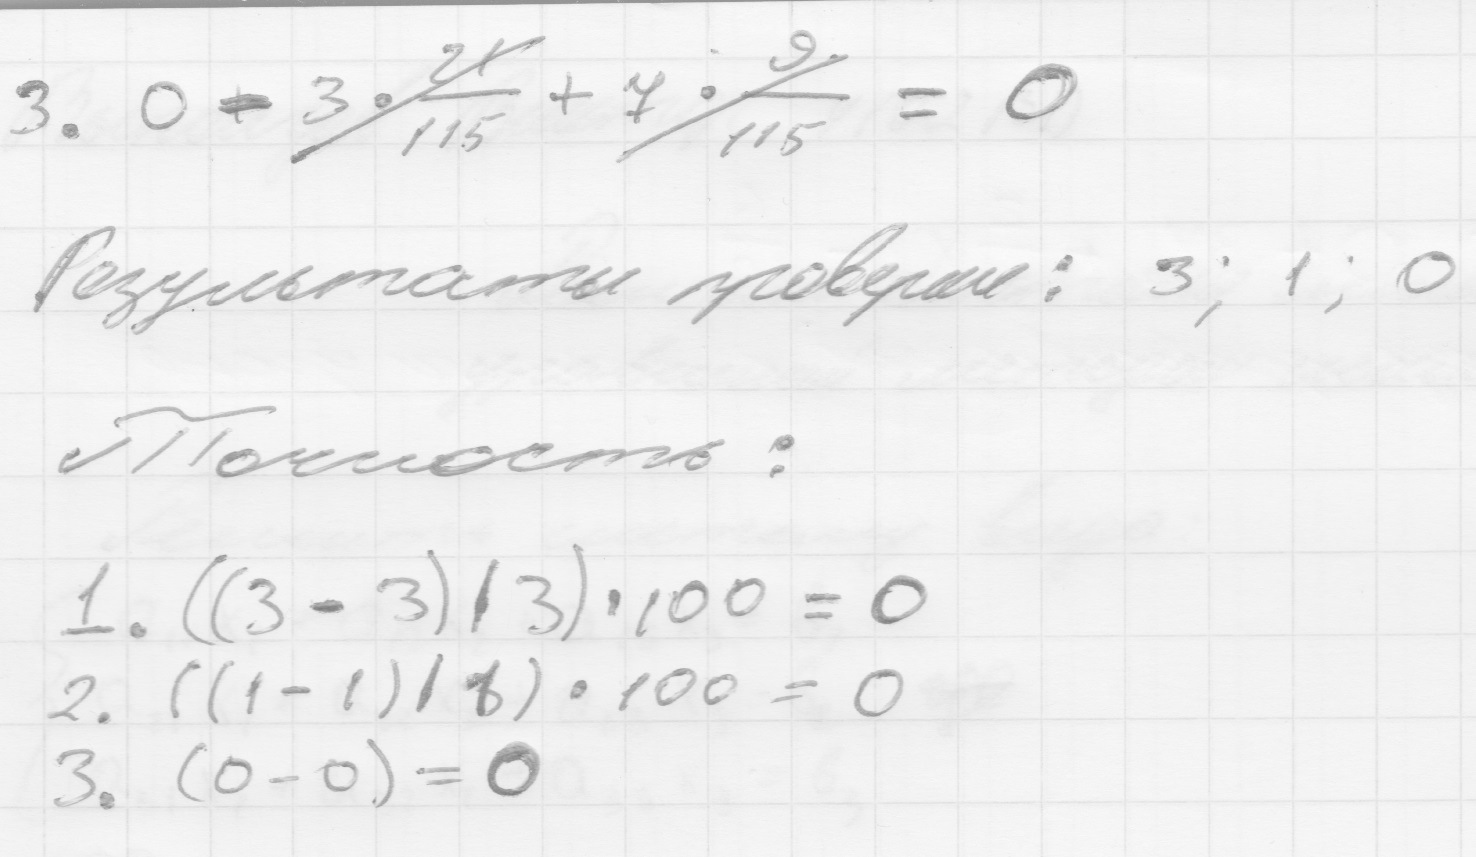 3. 0 - 3 · 21/115 + 7 · 9/115 = 0
Результаты проверки: 3; 1; 0
Точность:
1. ((3 - 3) / 3) · 100 = 0
2. ((1 - 1) / 1) · 100 = 0
3. (0 - 0) = 0